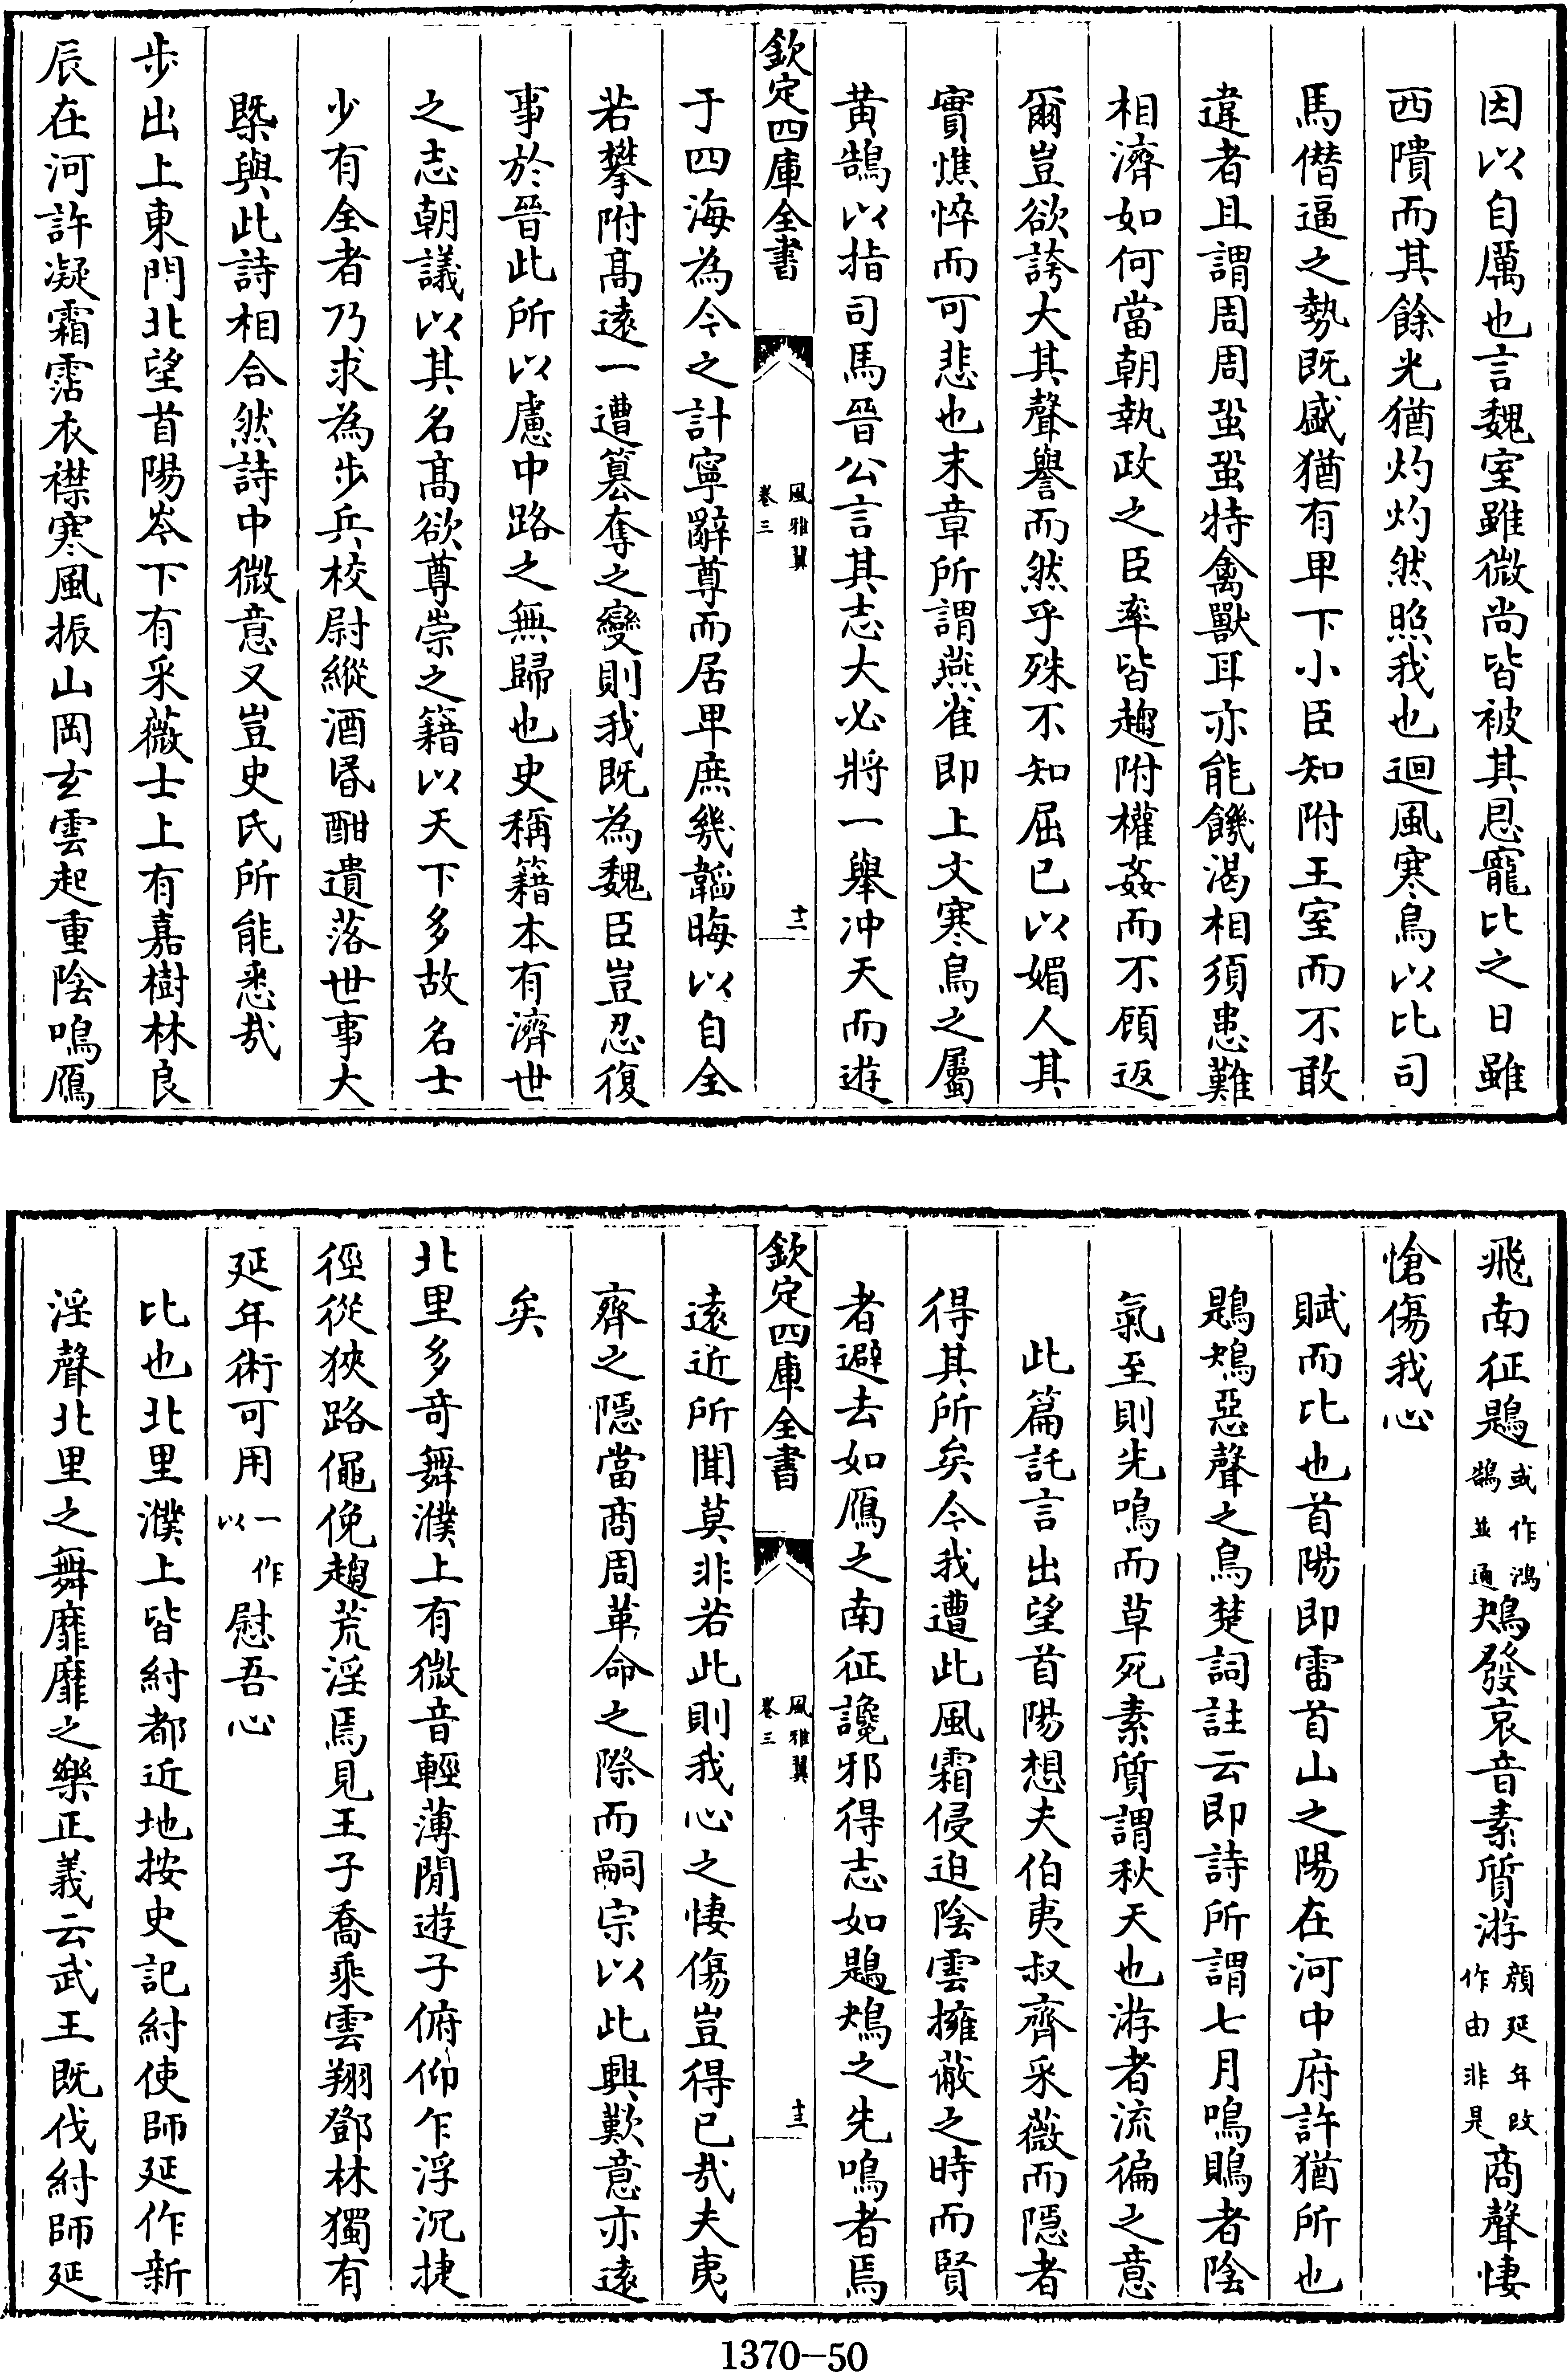 因以自厲也言魏室雖微尚皆被其恩寵比之日雖
西隤而其餘光猶灼灼然照我也迴風寒鳥以比司
馬僭逼之勢既盛猶有卑下小臣知附王室而不敢
違者且謂周周蛩蛩特禽獸耳亦能饑渴相須患難
相濟如何當朝執政之臣率皆趨附權姦而不顧返
爾豈欲誇大其聲譽而然乎殊不知屈已以媚人其
實憔悴而可悲也末章所謂燕雀即上文寒鳥之屬
黄鵠以指司馬晉公言其志大必將一舉冲天而遊
欽定四庫全書
風雅翼
卷三
十二
于四海為今之計寧辭尊而居卑庶幾韜晦以自全
若攀附髙遠一遭簒奪之變則我既為魏臣豈忍復
事於晉此所以慮中路之無歸也史稱籍本有濟世
之志朝議以其名髙欲尊崇之籍以天下多故名士
少有全者乃求為步兵校尉縱酒昬酣遺落世事大
槩與此詩相合然詩中微意又豈史氏所能悉哉
步出上東門北望首陽岑下有采薇士上有嘉樹林良
辰在河許凝霜霑衣襟寒風振山岡玄雲起重陰鳴鴈
飛南征鶗或作鴻鵠並通鴂發哀音素質游顔延年改作由非是商聲悽
愴傷我心
賦而比也首陽即雷首山之陽在河中府許猶所也
鶗鴂惡聲之鳥楚詞註云即詩所謂七月鳴鵙者陰
氣至則先鳴而草死素質謂秋天也游者流徧之意
此篇託言出望首陽想夫伯夷叔齊采薇而隱者
得其所矣今我遭此風霜侵迫陰雲擁蔽之時而賢
者避去如鴈之南征讒邪得志如鶗鴂之先鳴者焉
欽定四庫全書
風雅翼
卷三
十三
遠近所聞莫非若此則我心之悽傷豈得已哉夫夷
齊之隱當商周革命之際而嗣宗以此興歎意亦遠
矣
北里多奇舞濮上有微音輕薄閒遊子俯仰乍浮沉捷
徑從狹路僶俛趨荒淫焉見王子喬乘雲翔鄧林獨有
延年術可用一作以慰吾心
比也北里濮上皆紂都近地按史記紂使師延作新
淫聲北里之舞靡靡之樂正義云武王既伐紂師延
1370-50